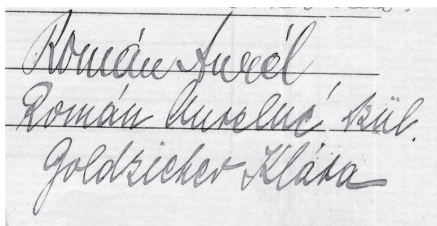 Román Aurél
Román Aurélné szül.
Goldzicher Klára